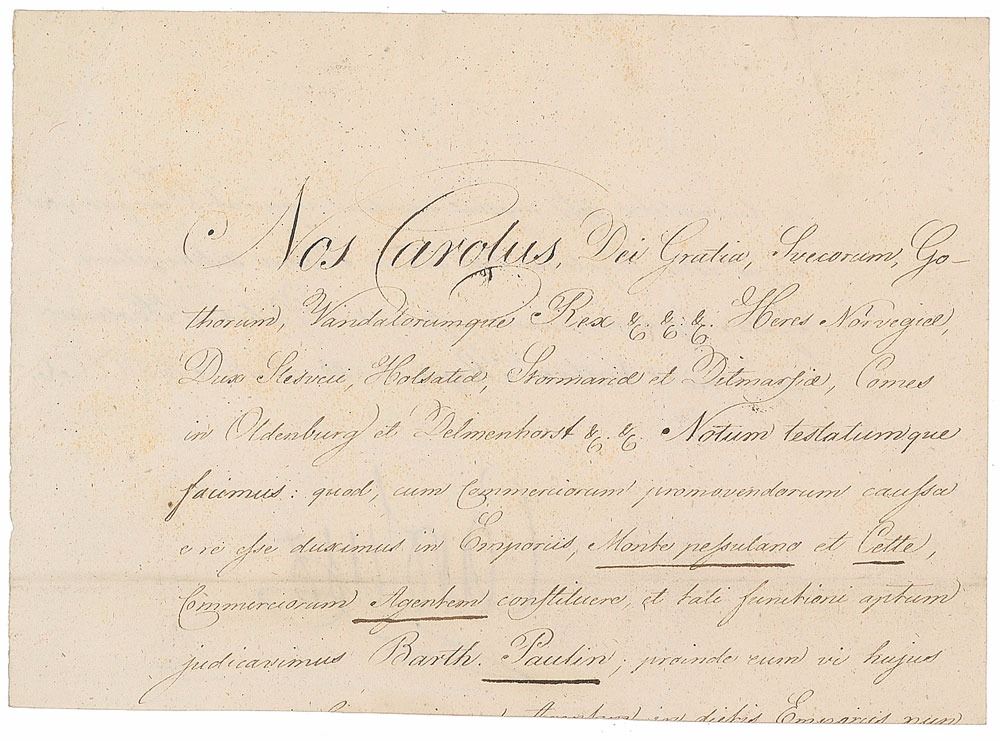 Nos Carolus, Dei Gratia, Svecorum, Go-
thorum, Vandalorumque Rex &c. &c. &c. Heres Norvegiæ,
Dux Slesvici, Holsatiæ, Stormariæ et Ditmarsiæ, Comes
in Oldenburg et Delmenhorst &c. &c. Notum testatumque
facimus: quod, cum Commerciorum promovendorum caussa
e re esse duximus in Emporiis, Monte pessulano et Cette,
Commerciorum Agentem constituere, et tali functioni aptum
judicavimus Barth. Paulin; proinde eum vi hujus
in dictis Emporiis nun